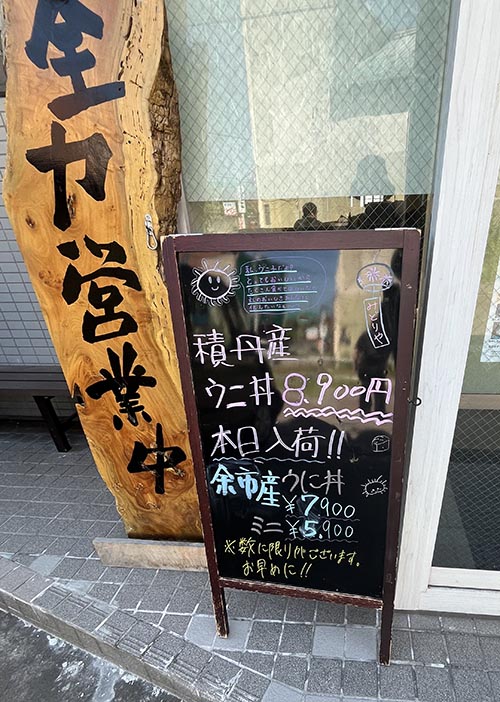 全力営業中
みどりや
積丹産
ウニ丼 8.900円
本日入荷!!
余市産うに丼
¥7.900
ミニ ¥5.900
※数に限りがございます。
お早めに!!